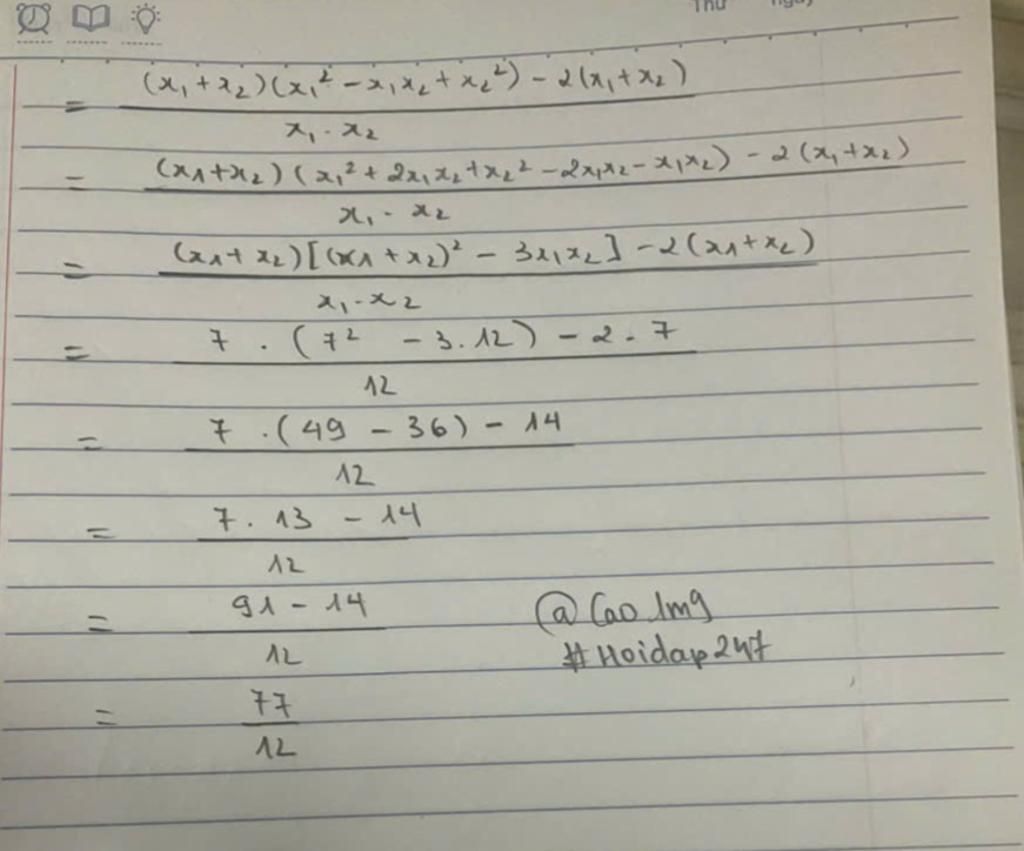 Thứ ngày
= (x₁ + x₂)(x₁² - x₁x₂ + x₂²) - 2(x₁ + x₂)
x₁ . x₂
= (x₁ + x₂)(x₁² + 2x₁x₂ + x₂² - 2x₁x₂ - x₁x₂) - 2(x₁ + x₂)
x₁ . x₂
= (x₁ + x₂)[(x₁ + x₂)² - 3x₁x₂] - 2(x₁ + x₂)
x₁ . x₂
= 7 . (7² - 3.12) - 2 . 7
12
= 7 . (49 - 36) - 14
12
= 7 . 13 - 14
12
= 91 - 14
12
@Cao1mg
#Hoidap247
= 77
12